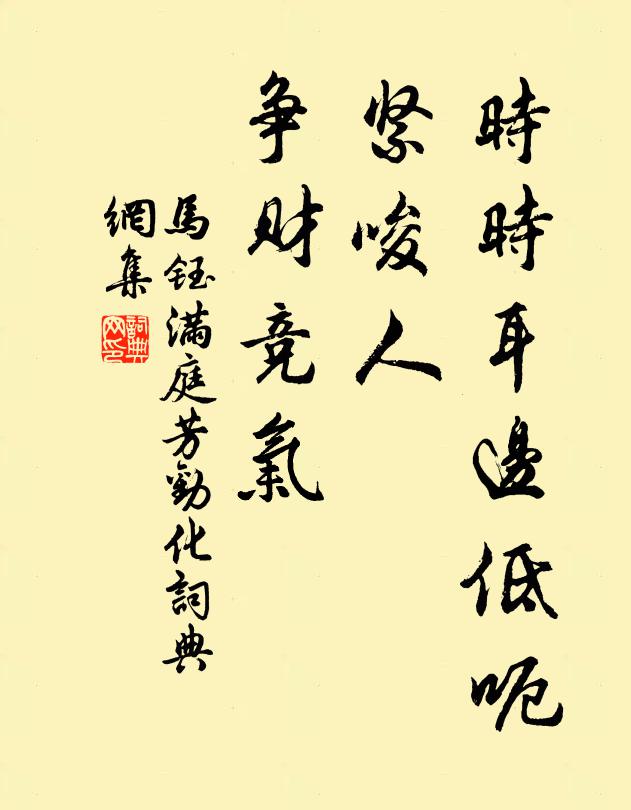 時時耳邊低呃
緊唆人
争财竞氣
馬鈺滿庭芳勸化詞典
網集
詞典
网印